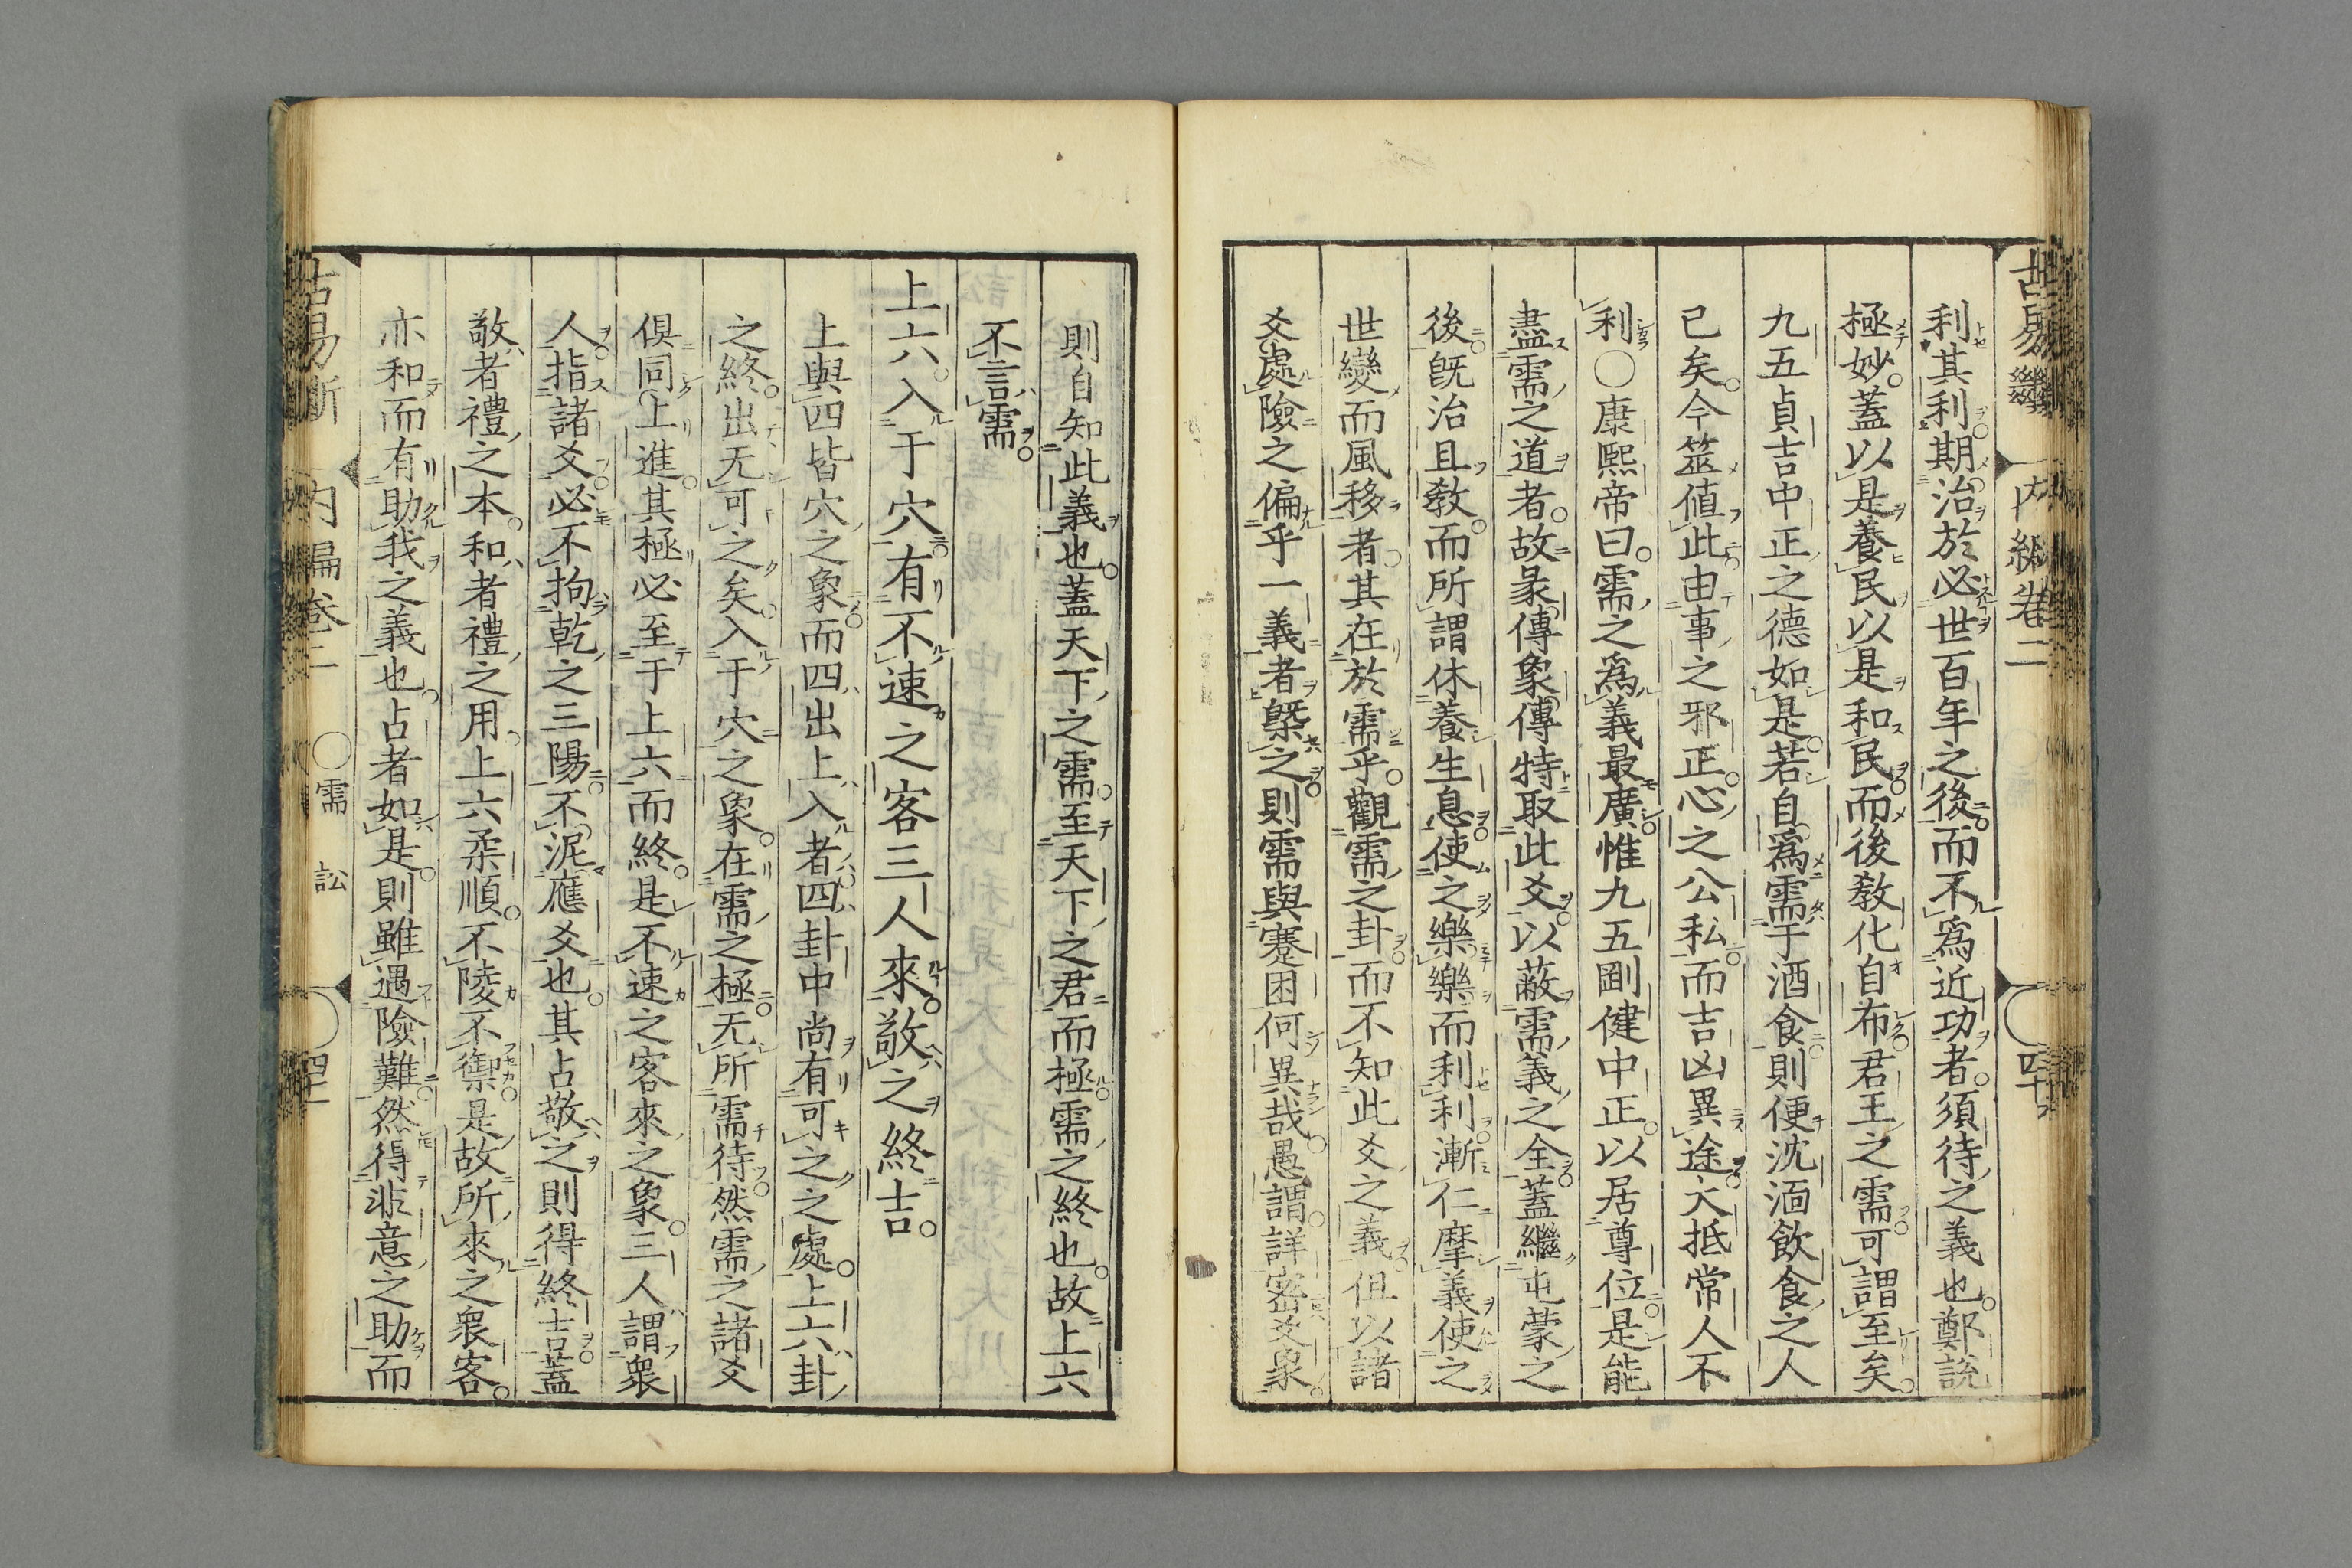 古易斷 内編卷二 四十
利其利期治於必世百年之後而不爲近功者須待之義也鄭說
極妙蓋以是養民以是和民而後敎化自布君王之需可謂至矣
九五貞吉中正之德如是若自爲需于酒食則便沈湎飲食之人
已矣今筮値此由事之邪正心之公私而吉凶異途大抵常人不
利○康熙帝曰需之爲義最廣惟九五剛健中正以居尊位是能
盡需之道者故彖傳象傳特取此爻以蔽需義之全蓋繼屯蒙之
後既治且敎而所謂休養生息使之樂樂而利利漸仁摩義使之
世變而風移者其在於需乎觀需之卦而不知此爻之義但以諸
爻處險之偏乎一義者槩之則需與蹇困何異哉愚謂詳密爻象
則自知此義也蓋天下之需至天下之君而極需之終也故上六
不言需
上六入于穴有不速之客三人來敬之終吉
上與四皆穴之象而四出上入者四卦中尚有可之之處上六卦
之終出无可之矣入于穴之象在需之極无所需待然需之諸爻
俱同上進其極必至于上六而終是不速之客來之象三人謂衆
人指諸爻必不拘乾之三陽不泥應爻也其占敬之則得終吉蓋
敬者禮之本和者禮之用上六柔順不陵不禦是故所來之衆客
亦和而有助我之義也占者如是則雖遇險難然得非意之助而
古易斷 内編卷二 ○需 訟